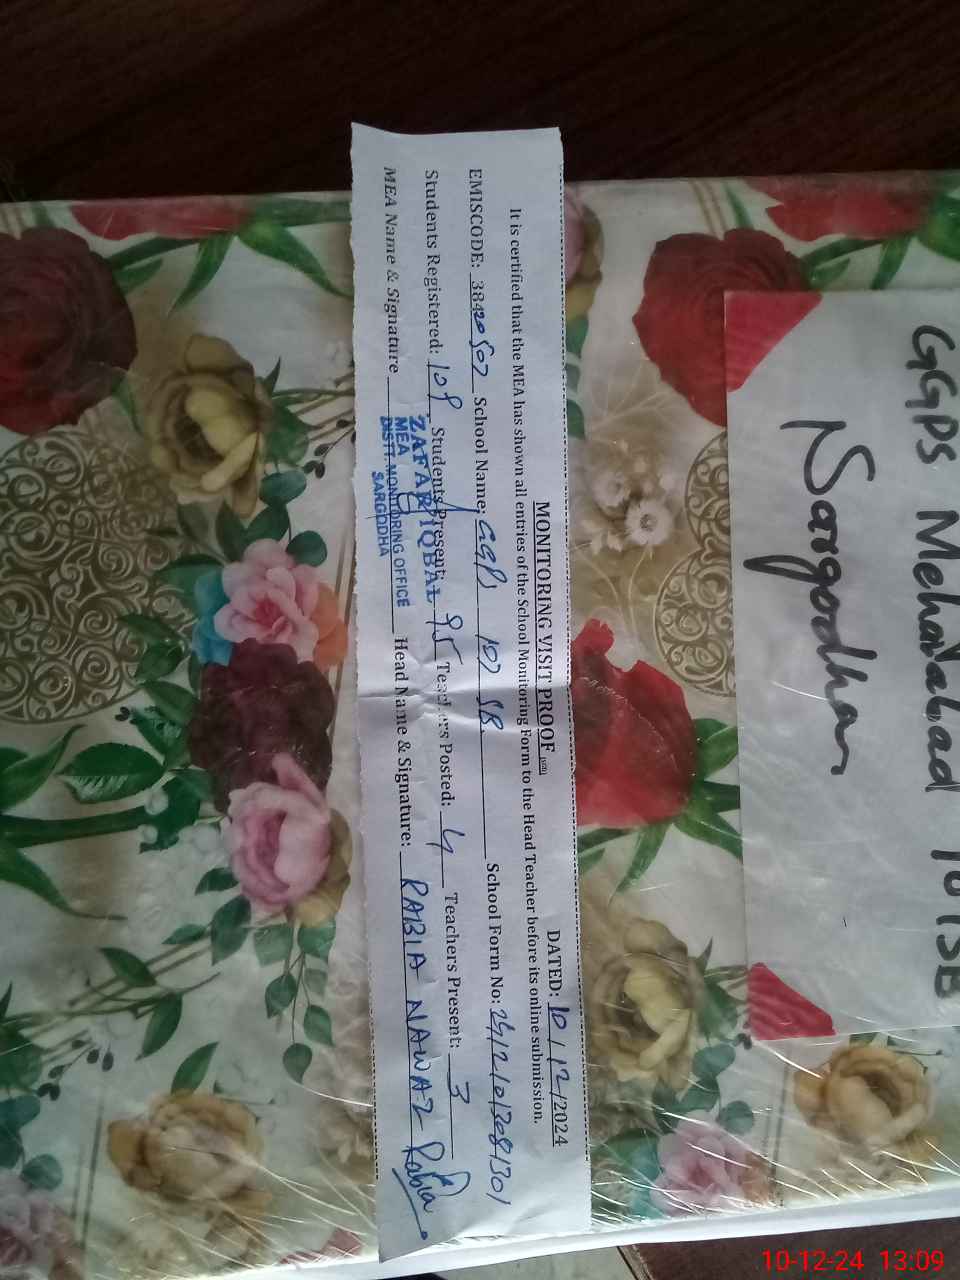 GGPS Mehatabad 107SB
Sargodha
MONITORING VISIT PROOF
DATED: 10/12/2024
It is certified that the MEA has shown all entries of the School Monitoring Form to the Head Teacher before its online submission.
EMISCODE: 38420507 School Name: GGPS 107 SB. School Form No:
Students Registered: 109 Students Present: 95 Teachers Posted: 4 Teachers Present: 3
MEA Name & Signature Head Name & Signature: RABIA NAWAZ Rabia
ZAFAR IQBAL
MEA
DISTT. MONITORING OFFICE
SARGODHA
10-12-24 13:09